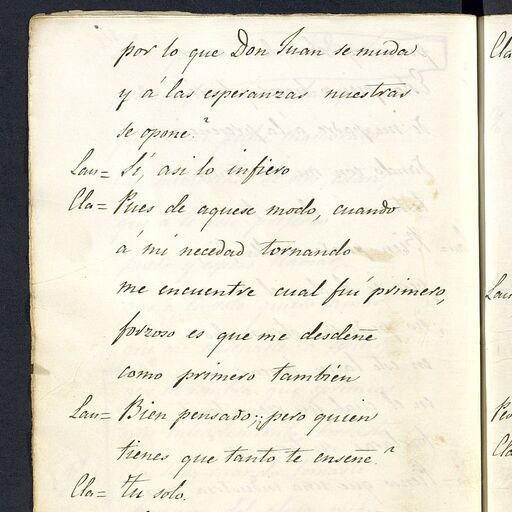 por lo que Don Juan se muda
y á las esperanzas nuestras
se opone?
Lau= Sí, asi lo infiero
Cla= Pues de aquese modo, cuando
á mi necedad tornando
me encuentre cual fuí primero,
forzoso es que me desdeñe
como primero tambien
Lau= Bien pensado; pero quien
tienes que tanto te enseñe?
Cla= Tu solo.
Cla
Lau
Pe
Cla